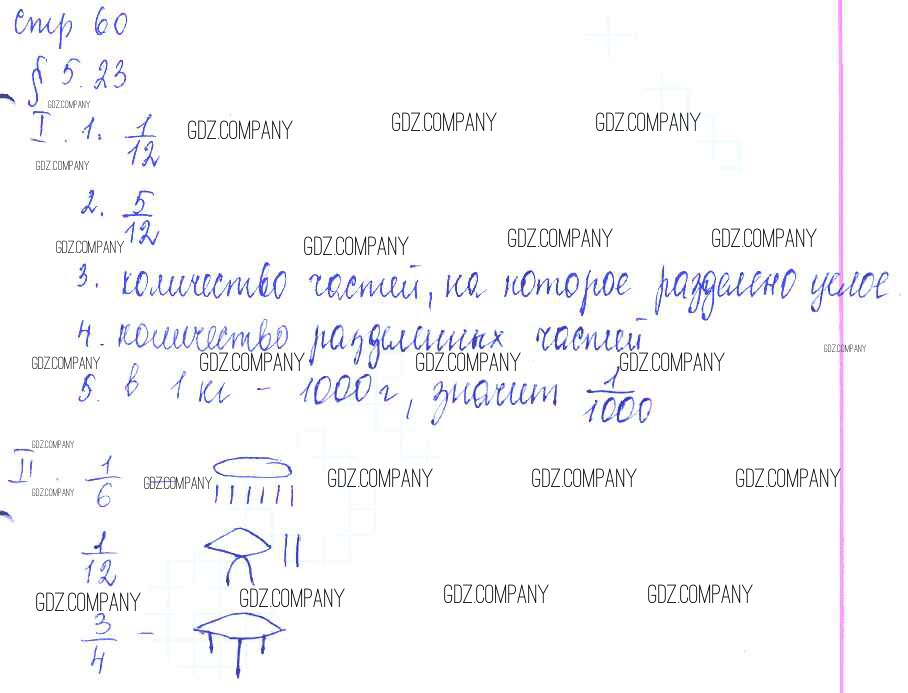 стр 60
§ 5.23
GDZ.COMPANY
I. 1. 1/12 GDZ.COMPANY GDZ.COMPANY GDZ.COMPANY
GDZ.COMPANY
2. 5/12
GDZ.COMPANY GDZ.COMPANY GDZ.COMPANY GDZ.COMPANY
3. количество частей, на которое разделено целое.
4. количество разделенных частей
GDZ.COMPANY GDZ.COMPANY GDZ.COMPANY GDZ.COMPANY GDZ.COMPANY
5. в 1 кг - 1000 г, значит 1/1000
GDZ.COMPANY
II. 1/6 GDZ.COMPANY GDZ.COMPANY GDZ.COMPANY GDZ.COMPANY
GDZ.COMPANY
1/12
GDZ.COMPANY GDZ.COMPANY GDZ.COMPANY GDZ.COMPANY
3/4 -